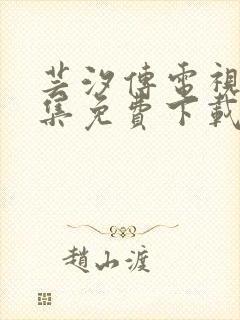 芸汐傳電視
集免費下載
趙山渡